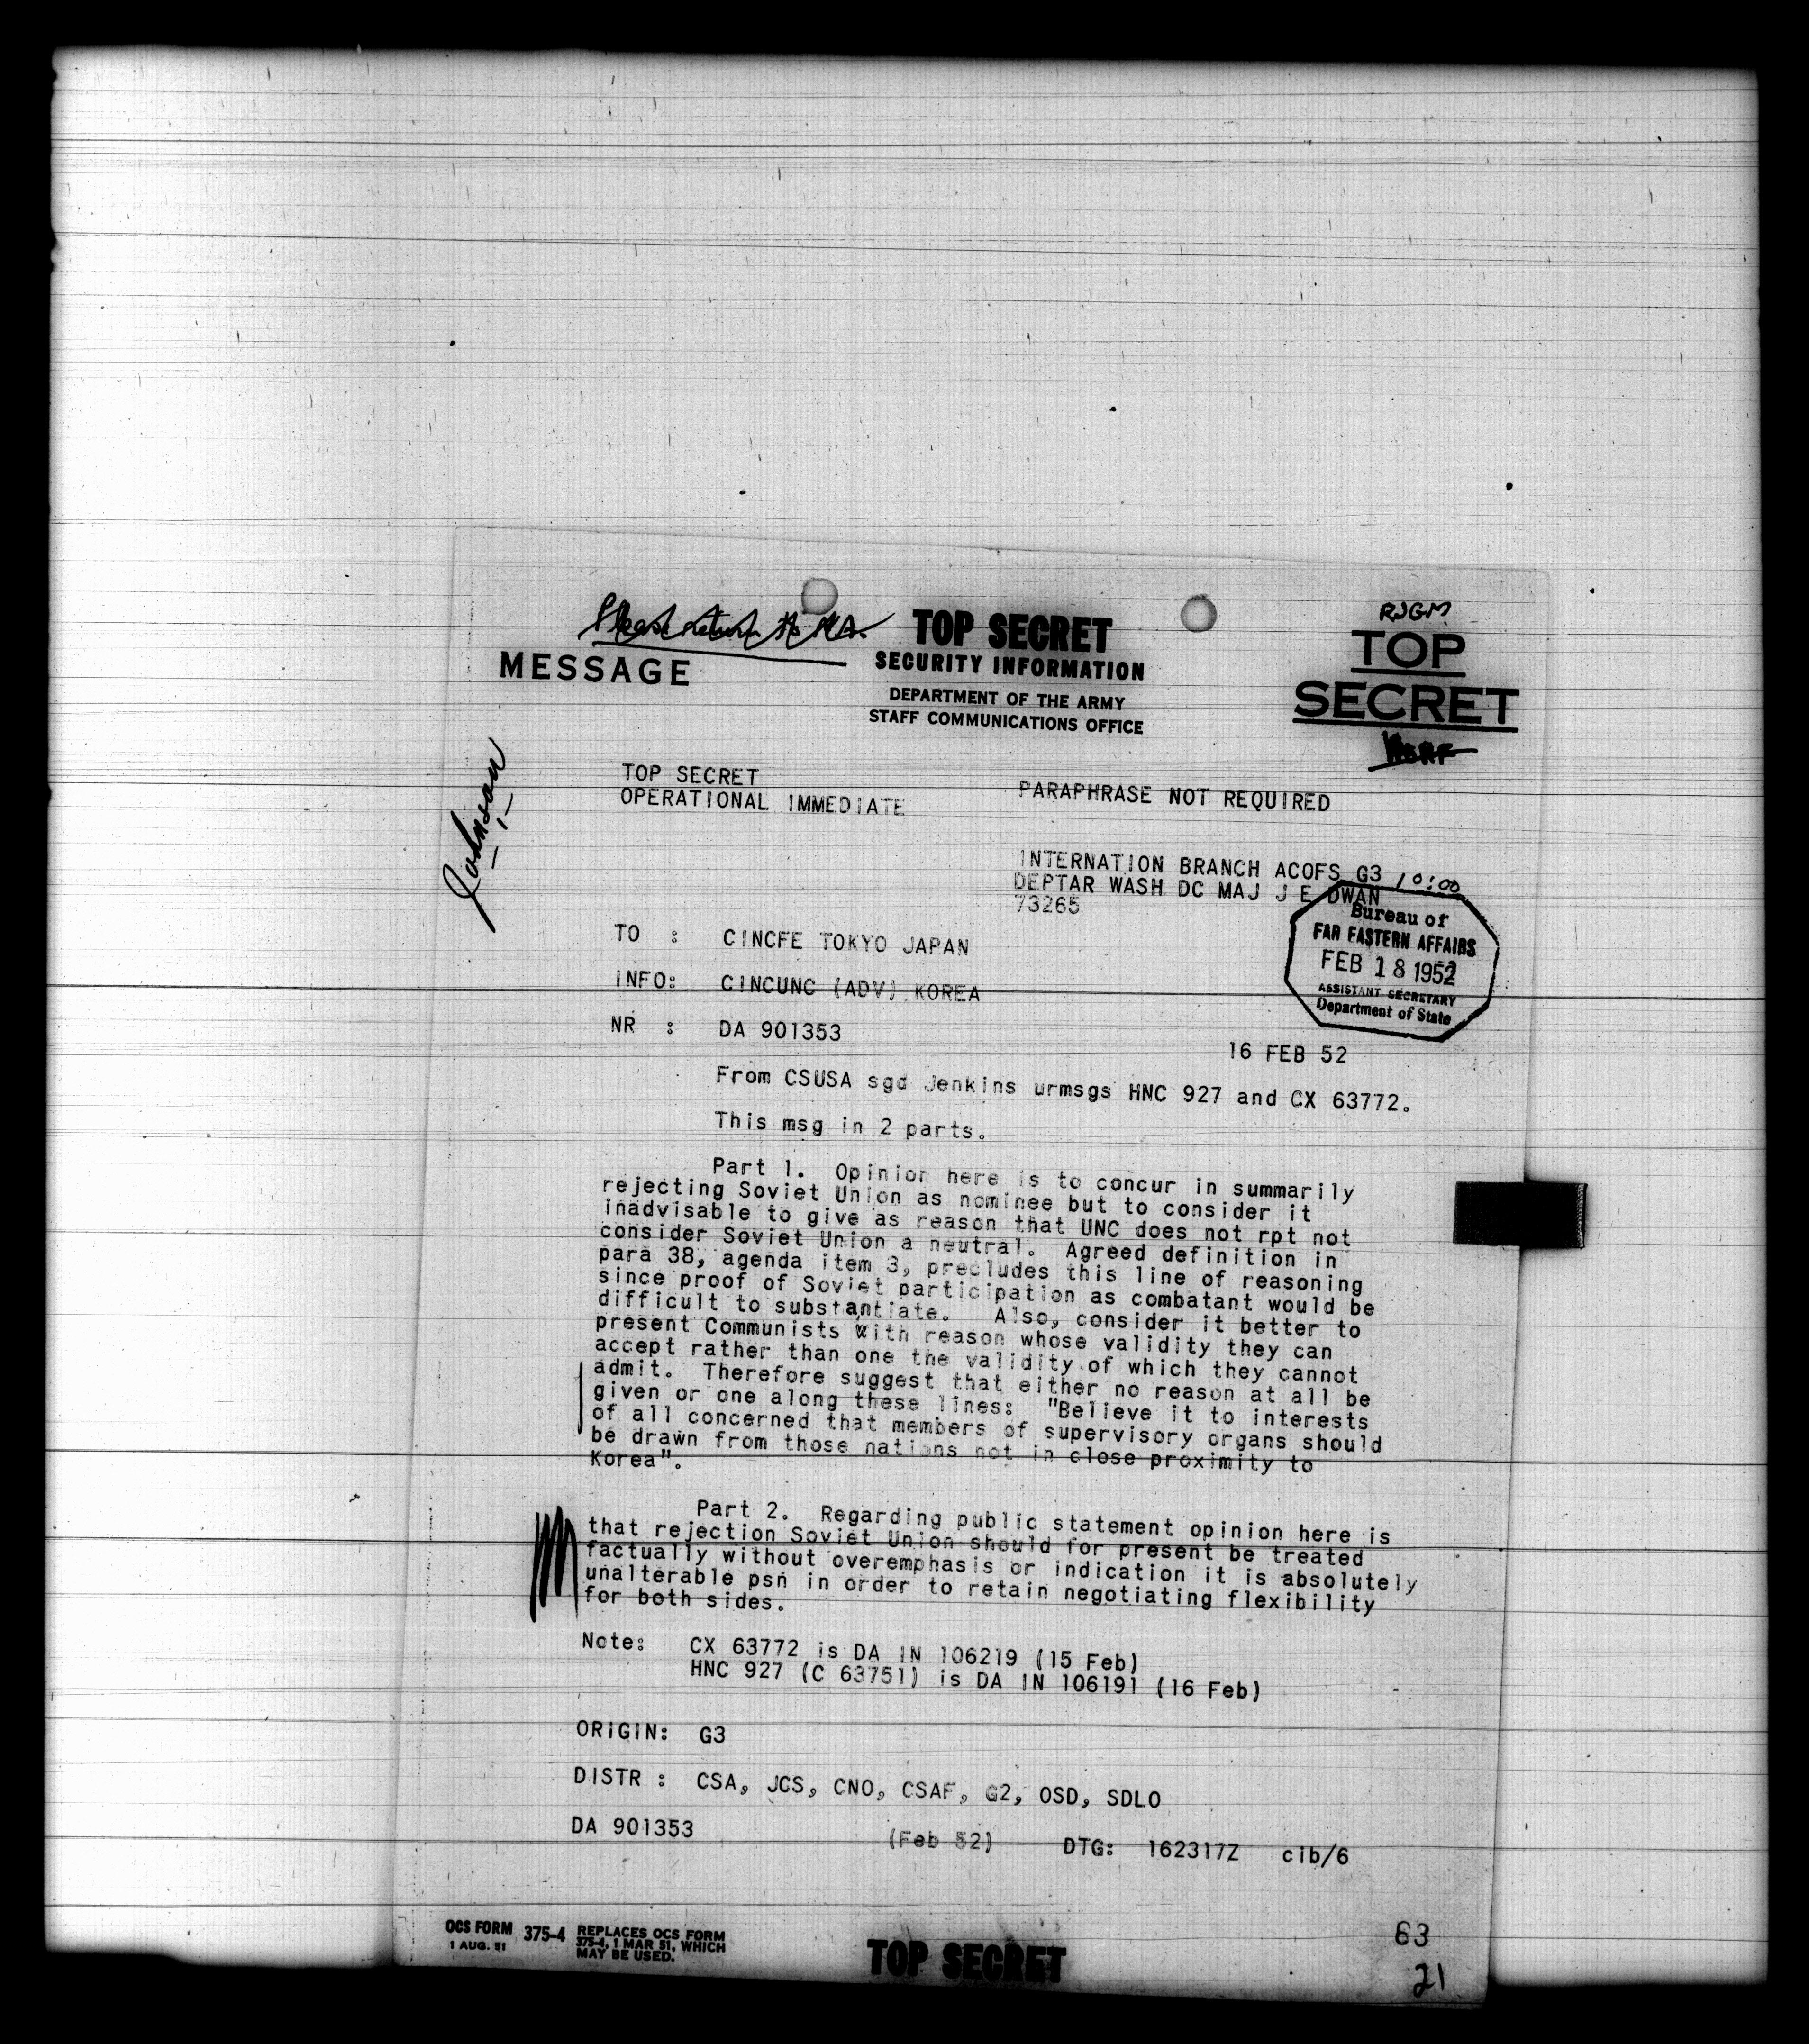 Please return to NA.
TOP SECRET
SECURITY INFORMATION
MESSAGE
DEPARTMENT OF THE ARMY
STAFF COMMUNICATIONS OFFICE
RJGM
TOP
SECRET
Johnson
TOP SECRET
OPERATIONAL IMMEDIATE
PARAPHRASE NOT REQUIRED
INTERNATION BRANCH ACOFS G3
DEPTAR WASH DC MAJ J E DWAN
73265
10:00
Bureau of
FAR EASTERN AFFAIRS
FEB 18 1952
ASSISTANT SECRETARY
Department of State
TO : CINCFE TOKYO JAPAN
INFO: CINCUNC (ADV) KOREA
NR : DA 901353
16 FEB 52
From CSUSA sgd Jenkins urmsgs HNC 927 and CX 63772.
This msg in 2 parts.
Part 1. Opinion here is to concur in summarily
rejecting Soviet Union as nominee but to consider it
inadvisable to give as reason that UNC does not rpt not
consider Soviet Union a neutral. Agreed definition in
para 38, agenda item 3, precludes this line of reasoning
since proof of Soviet participation as combatant would be
difficult to substantiate. Also, consider it better to
present Communists with reason whose validity they can
accept rather than one the validity of which they cannot
admit. Therefore suggest that either no reason at all be
given or one along these lines: "Believe it to interests
of all concerned that members of supervisory organs should
be drawn from those nations not in close proximity to
Korea".
Part 2. Regarding public statement opinion here is
that rejection Soviet Union should for present be treated
factually without overemphasis or indication it is absolutely
unalterable psn in order to retain negotiating flexibility
for both sides.
Note: CX 63772 is DA IN 106219 (15 Feb)
HNC 927 (C 63751) is DA IN 106191 (16 Feb)
ORIGIN: G3
DISTR : CSA, JCS, CNO, CSAF, G2, OSD, SDLO
DA 901353 (Feb 52) DTG: 162317Z cib/6
OCS FORM 375-4 REPLACES OCS FORM
1 AUG. 51 375-4, 1 MAR 51, WHICH
MAY BE USED.
TOP SECRET
63
21